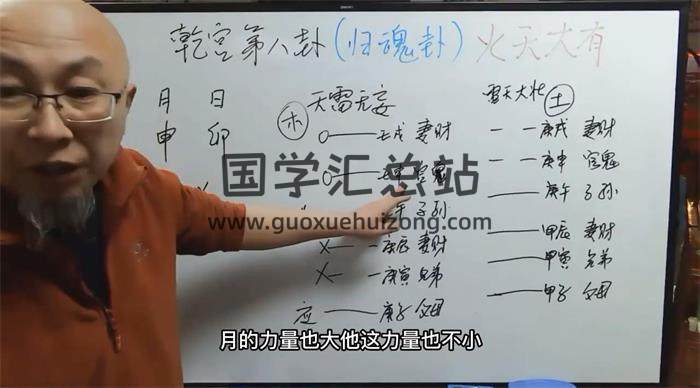 乾宫第八卦(归魂卦) 火天大有
月 日
申 卯
天雷无妄
木
壬戌 妻财
官鬼
午 子孙
庚辰 妻财
庚寅 兄弟
应 庚子 父母
雷天大壮
土
庚戌 妻财
庚申 官鬼
庚午 子孙
甲辰 妻财
甲寅 兄弟
甲子 父母
国学汇总站
www.guoxuehuizong.com
月的力量也大他这力量也不小